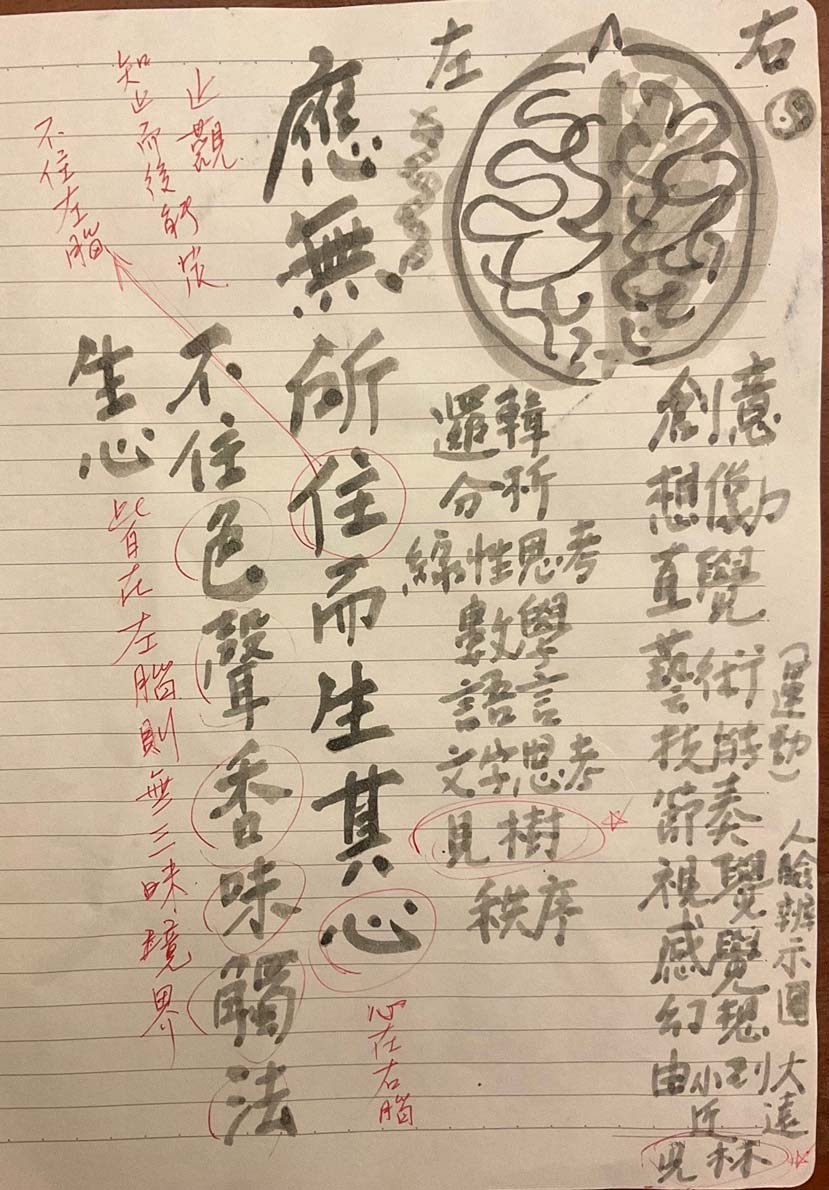 右
左
創意
想働
直覺
藝術
技能
節奏
視覺
感覺
幻想
由小到大
近遠
見林
(運動)
人臉辨示圖
邏輯
分析
線性思考
數學
語言
文字思考
見樹
秩序
應無所住而生其心
心在右腦
不住色聲香味觸法
生心
皆在左腦則無三昧境界
止觀
知止而後能定
不住左腦